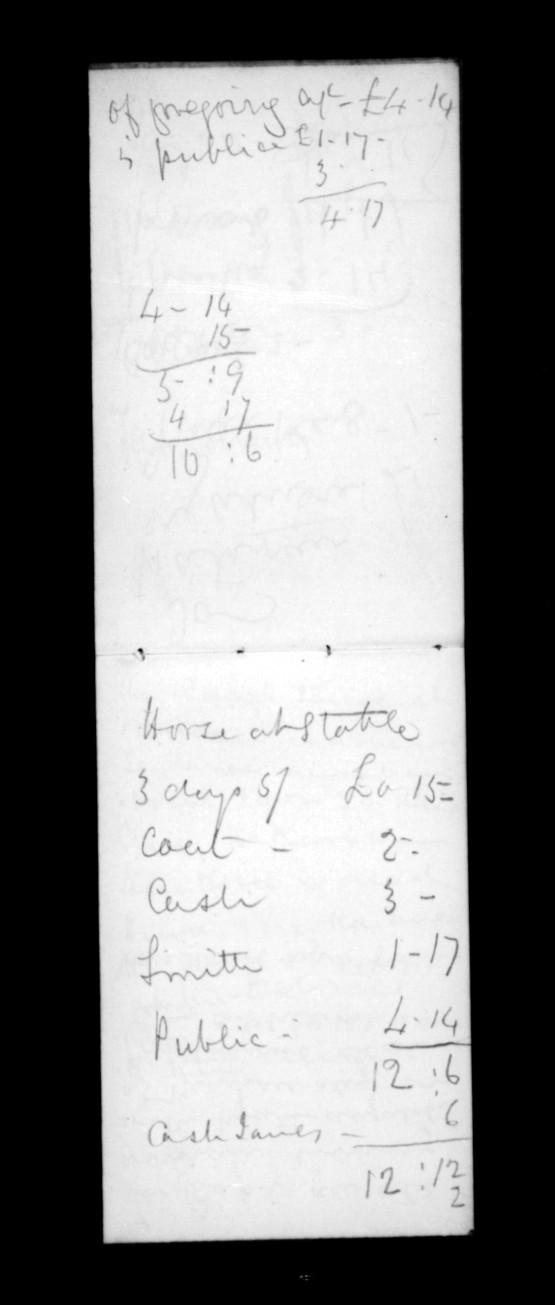 of foregoing a/c - £4-14
is public £1-17-
3 -
4-17
4 - 14
15-
5- :9
4 17
10 :6
Horse at Stable
3 days 5/ £0 15=
Coat - 2-
Cash 3 -
Smith 1-17
Public - 4-14
12 :6
Cash James - 6
12 :12
2